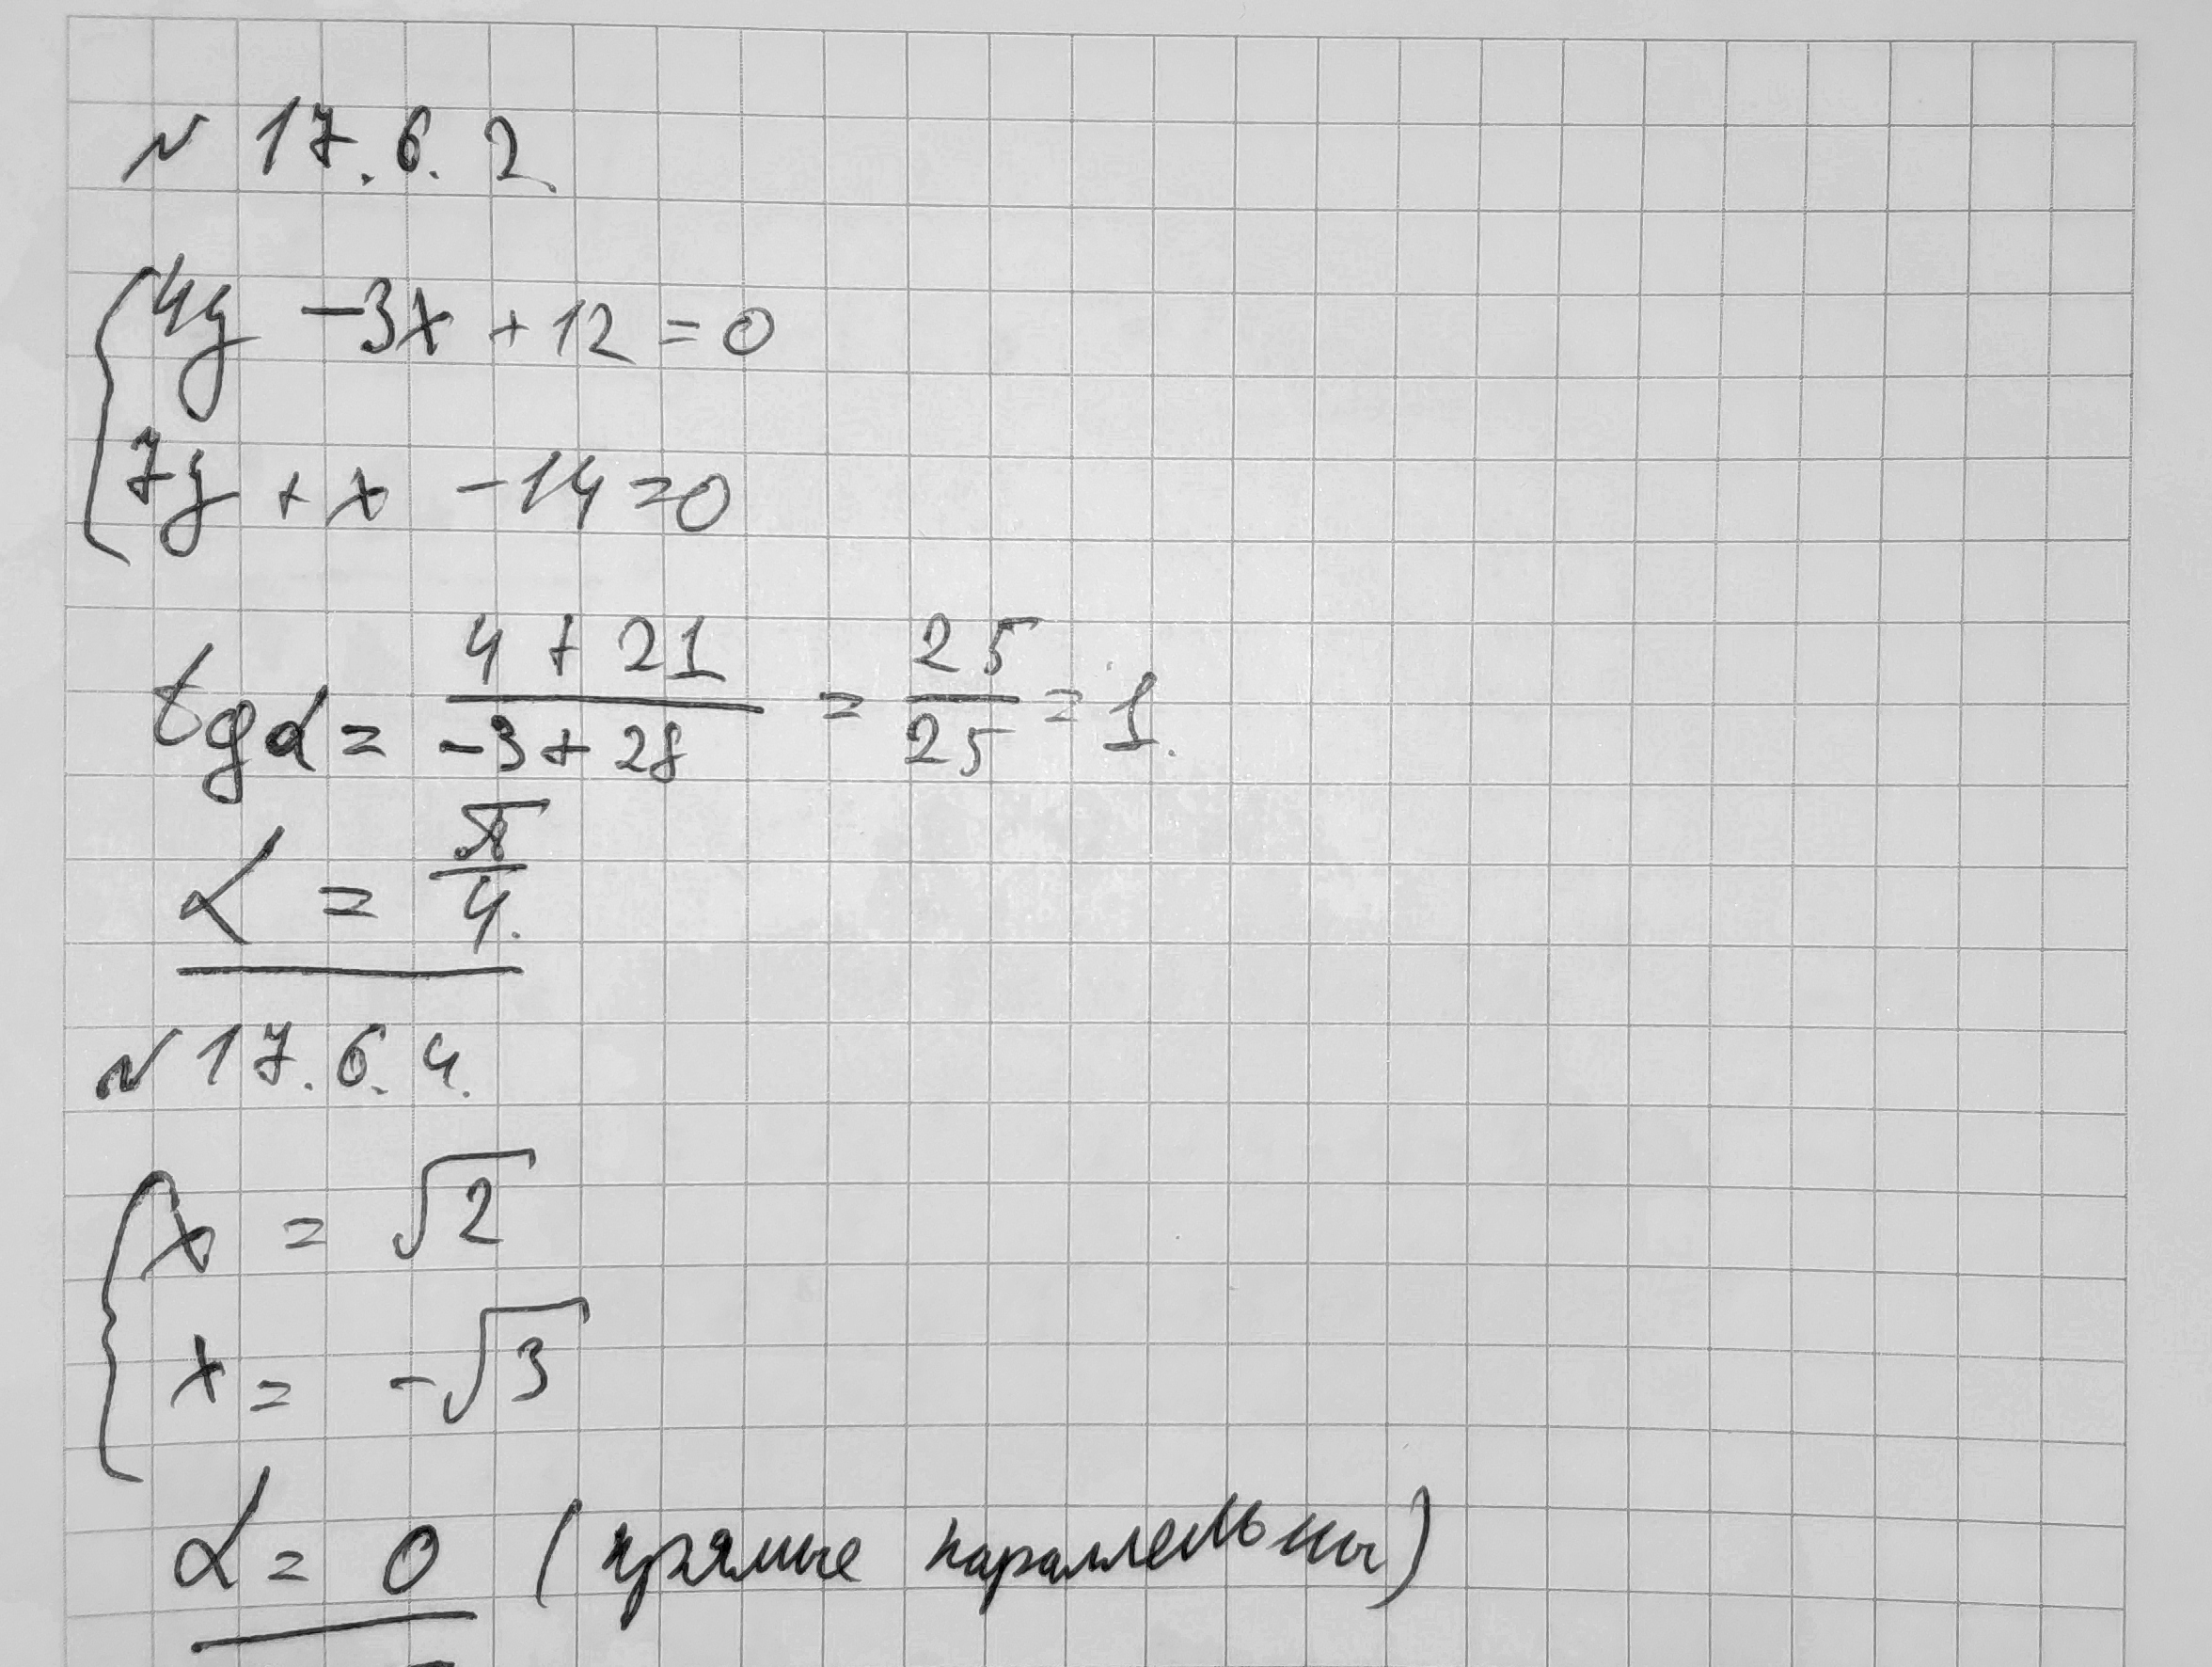 № 17.6.2
4y -3x +12 = 0
7y + x -14 = 0
tgα = (4 + 21)/(-3 + 28) = 25/25 = 1.
α = π/4.
№ 17.6.4.
x = √2
x = -√3
α = 0 (прямые параллельны)